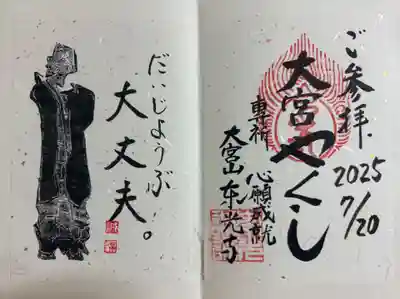 ご参拝
2025
7/20
大宮やくし
専祈
心願成就
大宮山东光寺
だいじょうぶ
大丈夫。